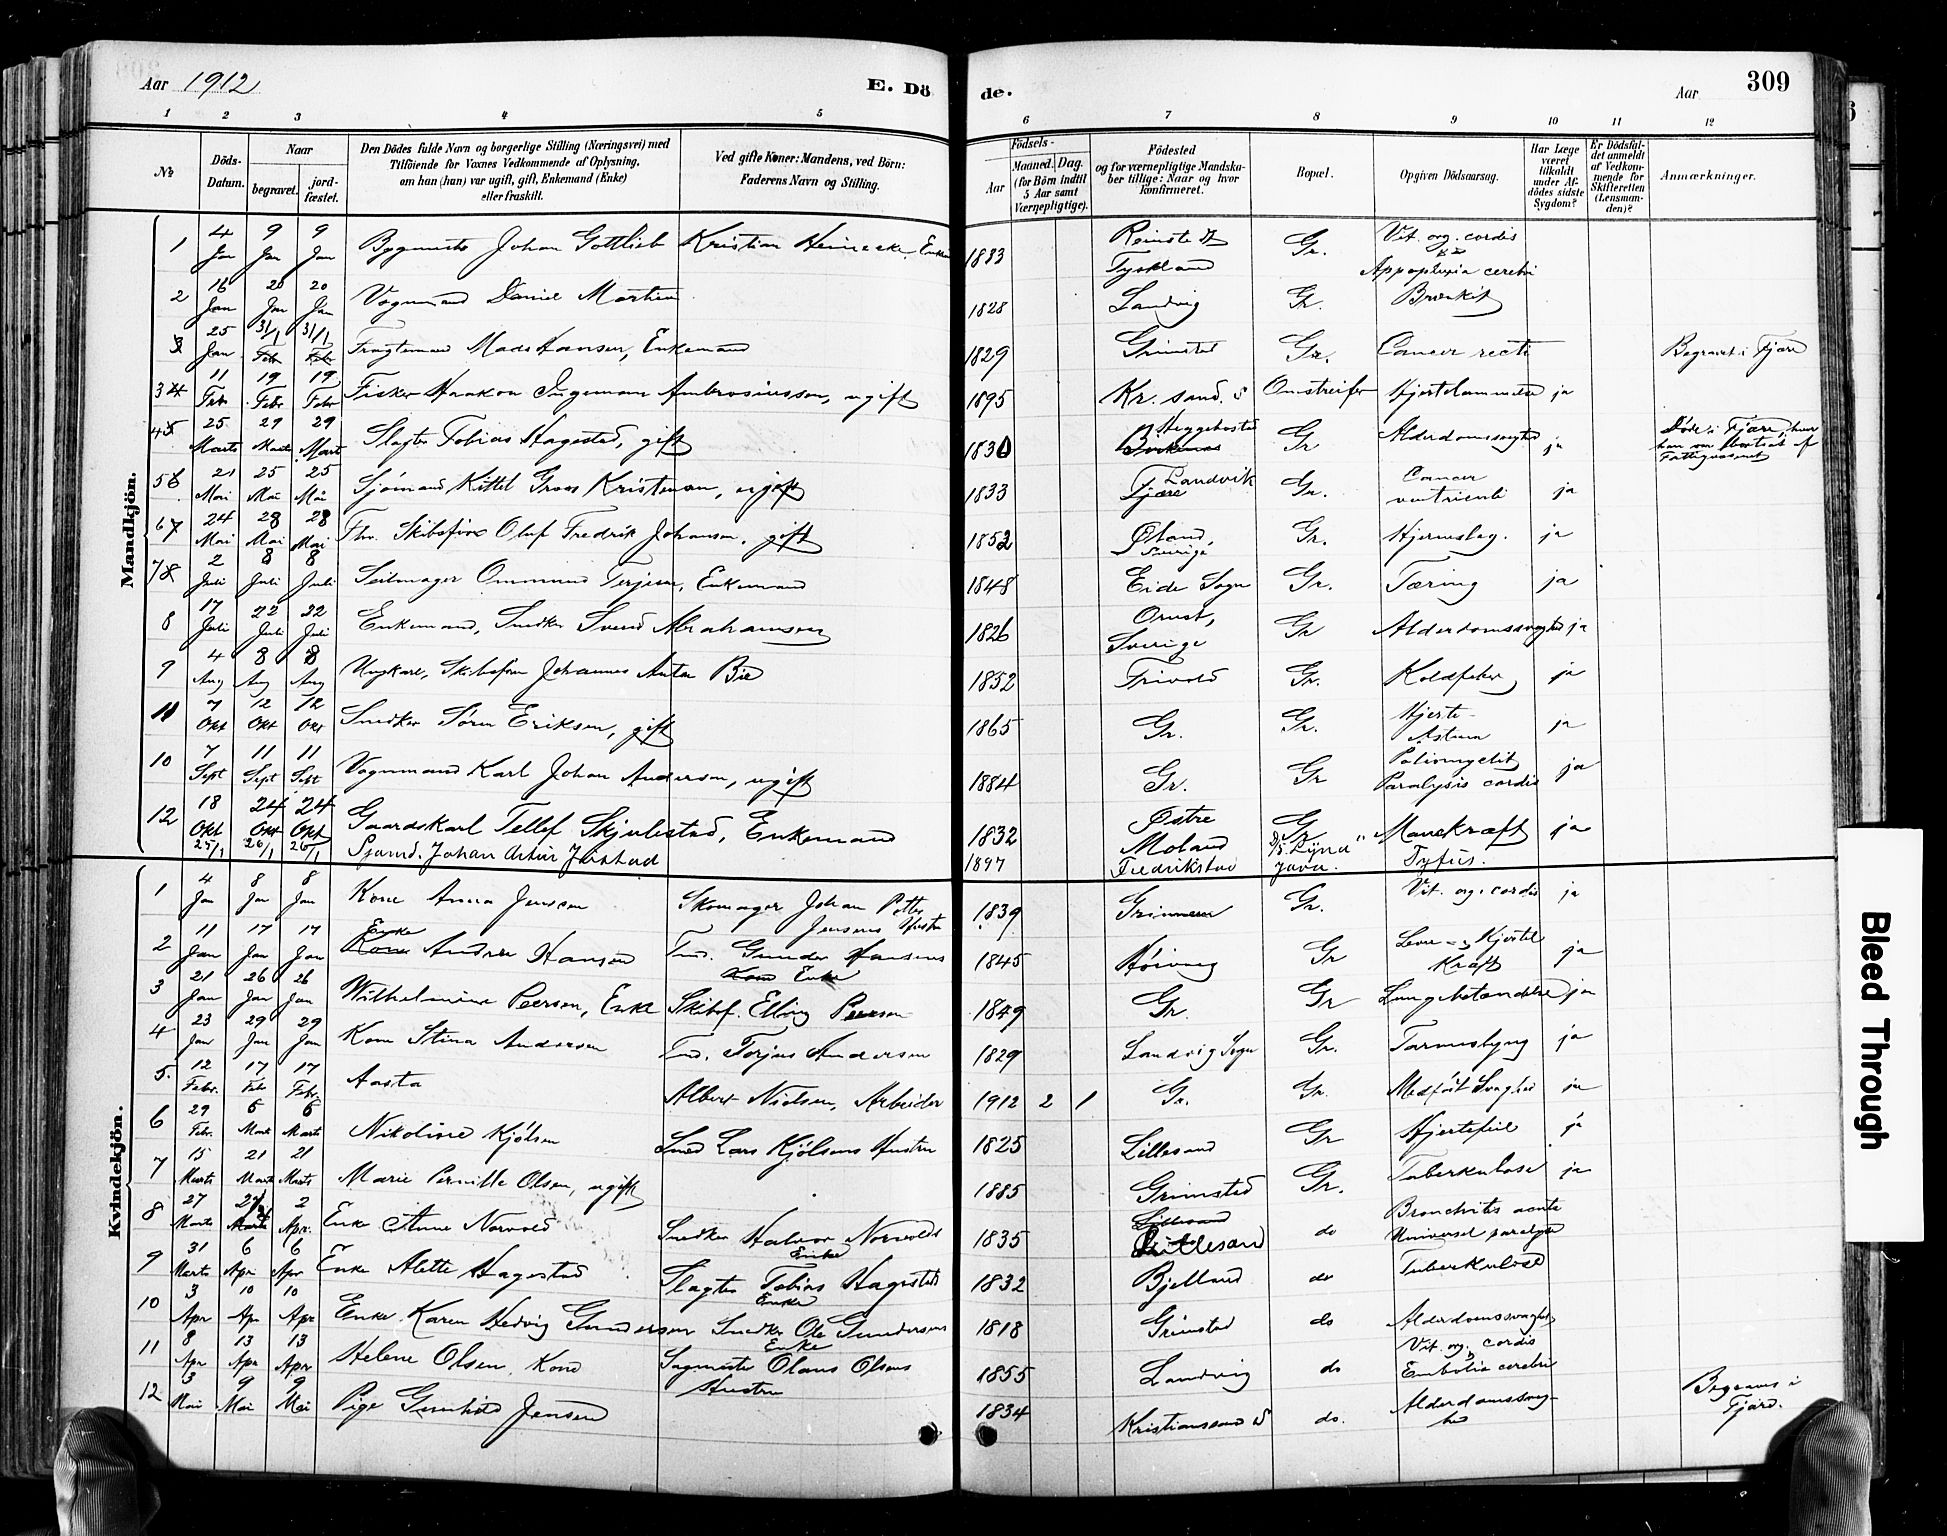 Aar 1912
E. Dö
de.
Aar
309
1 2 3 4 5 6 7 8 9 10 11 12
№
Döds-Datum.
Naar
begravet.
jord-fæstet.
Den Dödes fulde Navn og borgerlige Stilling (Næringsvei) med
Tilföiende for Voxnes Vedkommende af Oplysning,
om han (hun) var ugift, gift, Enkemand (Enke)
eller fraskilt.
Ved gifte Koner: Mandens, ved Börn:
Faderens Navn og Stilling.
Födsels-
Aar
Maaned. Dag.
(for Börn indtil
5 Aar samt
Værnepligtige).
Födested
og for værnepligtige Mandska-
ber tillige: Naar og hvor
konfirmeret.
Bopæl.
Opgiven Dödsaarsag.
Har Læge
været
tilkaldt
under Af-
dödes sidste
Sygdom?
Er Dödsfal-
det anmeldt
af Vedkom-
mende for
Skifteretten
(Lensman-
den)?
Anmærkninger.
Mandkjön.
1 4 Jan 9 Jan 9 Jan Johan Gottlieb Kristian Heinecke, Enkem 1833 Tyskland Gr. Vit. org. cordis Appoplexia cerebri
2 16 Jan 20 Jan 20 Jan Vognmand Daniel Martin 1828 Landvig Gr. Bronkit
3 25 Jan 31/1 Febr 31/1 Febr Fragtemand Mads Hansen, Enkemand 1829 Grimstad Gr. Cancer recti Begravet i Fjære
3 4 11 Febr 19 Febr 19 Febr Fisker Haakon Ingeman Ambrosiussen, ugift 1895 Kr. sand. S Omstreifer Hjertelammelse ja
4 5 25 Marts 29 Marts 29 Marts Slagter Tobias Hagestad, gift 1830 Heggebostad Birkenes Gr Alderdomssvaghed ja Döde i Fjære, hvor han var bortsat af Fattigvæsenet
5 6 21 Mai 25 Mai 25 Mai Sjömand Kittel Groos Kristensen, ugift 1833 Landvik Fjære Gr. Cancer ventriculi ja
6 7 24 Mai 28 Mai 28 Mai Fhv. Skibsförer Oluf Fredrik Johansen, gift 1852 Øland, Sverige Gr. Hjerneslag. ja
7 8 2 Juli 8 Juli 8 Juli Seilmager Ommund Terjesen, Enkemand 1848 Eide Sogn Gr. Tæring ja
8 17 Juli 22 Juli 22 Juli Enkemand, Snedker Svend Abrahamsen 1826 Orust, Sverige Gr Alderdomssvaghed ja
9 4 Aug 8 Aug 8 Aug Ungkarl, Skibsförer Johannes Anton Bie 1852 Frivold Gr. Koldfeber ja
11 7 Okt 12 Okt 12 Okt Snedker Sören Eriksen, gift 1865 Gr. Gr. Hjerte-Astma ja
10 7 Sept 11 Sept 11 Sept Vognmand Karl Johan Andersen, ugift 1884 Gr. Gr Poliomyelit Paralysis cordis ja
12 18 Okt 24 Okt 24 Okt Gaardskarl Tellef Skjulestad, Enkemand 1832 Østre Moland Gr Mavekræft ja
25/1 26/1 26/1 Sjömd. Johan Artur Jestad 1897 Fredrikstad D/S "Lyna" Java. Tyfus.
Kvindekjön.
1 4 Jan 8 Jan 8 Jan Kone Anna Jensen Skomager Johan Petter Jensens Hustru 1839 Gr. Vit. org. cordis ja
2 11 Jan 17 Jan 17 Jan Enke Kone Andrea Hansen Tmd. Gunder Hansens Kone Enke 1845 Höivaag Gr Lever- og Hjerte Kræft ja
3 21 Jan 26 Jan 26 Jan Wilhelmine Peersen, Enke Skibsf. Elling Peersen 1849 Gr. Gr Lungebetændelse ja
4 23 Jan 29 Jan 29 Jan Kone Stina Andersen Tmd. Torjus Andersen 1829 Landvig Sogn Gr. Tarmslyng ja
5. 12 Febr. 17 Febr 17 Febr. Aasta Albert Nielsen, Arbeider 1912 2 1 Gr. Gr. Medfödt Svaghed ja
6 29 Febr. 6 Marts 6 Marts Nikoline Kjölsen Smed Lars Kjölsens Hustru 1825 Lillesand Gr Hjertefeil ja
7 15 Marts 21 Marts 21 Marts Marie Pernille Olsen, ugift 1885 Grimstad Gr. Tuberkulose ja
8 27 Marts 2 Apr. Enke Anne Norvold Snedker Halvor Norvolds Enke 1835 Lillesand Lillesand do Bronchitis acuta Universel paralyse
9 31 Marts 6 Apr 6 Apr Enke Alette Hagestad Slagter Tobias Hagestads Enke 1832 Bjelland do Tuberkulose
10 3 Apr 10 Apr 10 Apr Enke Karen Hedvig Gundersen Snedker Ole Gundersens Enke 1818 Grimstad do Alderdomssvaghed
11 8 Apr 13 Apr 13 Apr Helene Olsen, Kone Sagmester Olaus Olsens Hustru 1855 Landvig do Vit. org. cordis Embolia cerebri
12 3 Mai 9 Mai 9 Mai Pige Gunhild Jensen 1834 Kristianssand S do. Alderdomssvaghed Begraves i Fjære.
Bleed Through